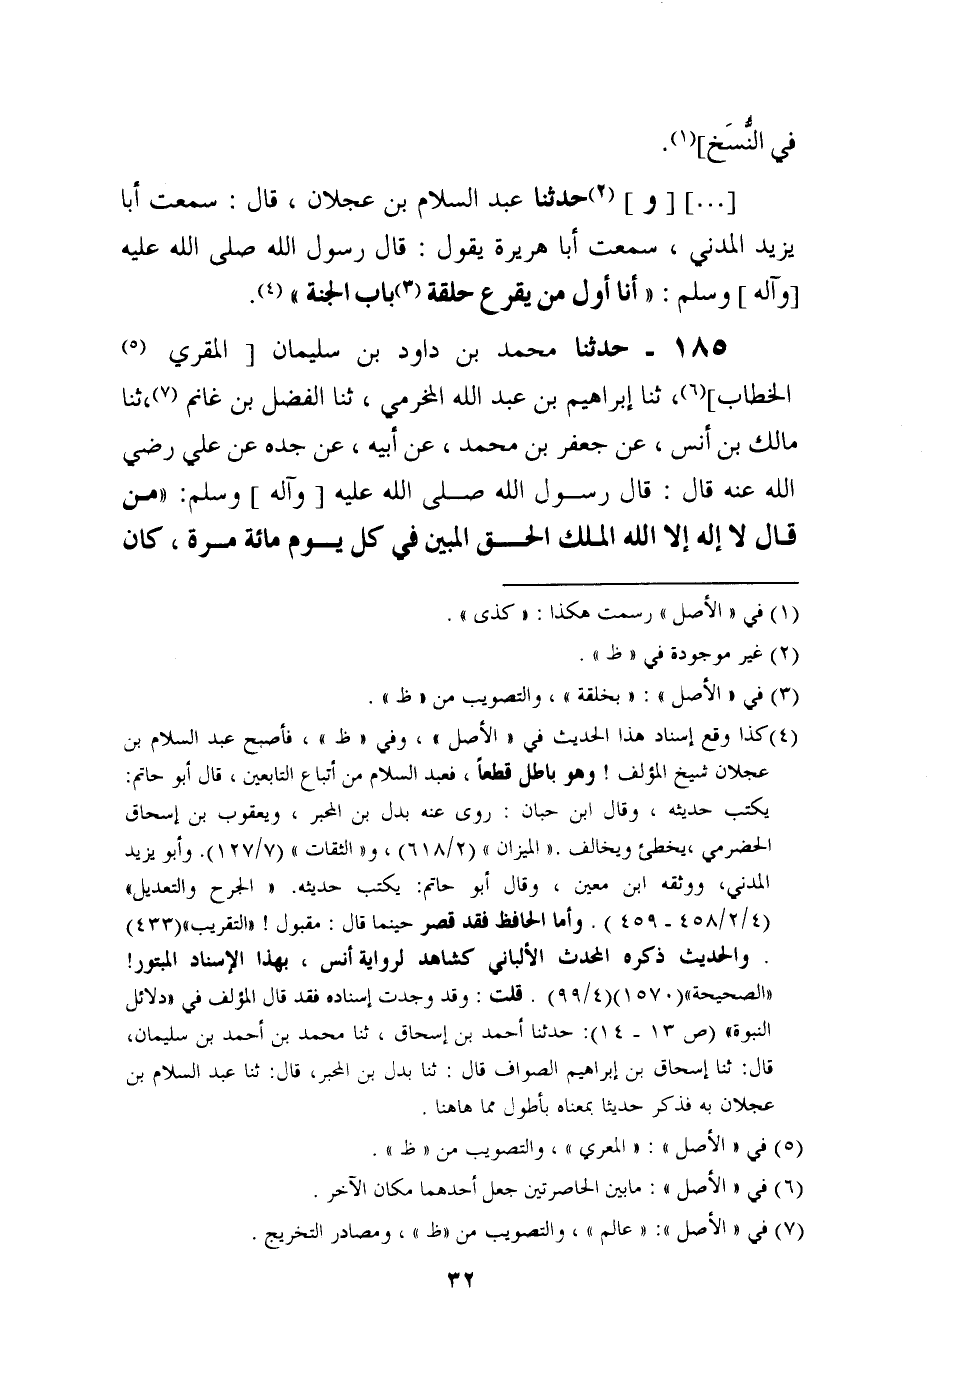 في النُّسَخ](١).
[...] [ و ] (٢)حدثنا عبد السلام بن عجلان ، قال : سمعت أبا
يزيد المدني ، سمعت أبا هريرة يقول : قال رسول الله صلى الله عليه
[وآله ] وسلم : « أنا أول من يقرع حلقة (٣)باب الجنة » (٤).
١٨٥ ـ حدثنا محمد بن داود بن سليمان [ المقري (٥)
الخطاب](٦)، ثنا إبراهيم بن عبد الله المخرمي ، ثنا الفضل بن غانم (٧)،ثنا
مالك بن أنس ، عن جعفر بن محمد ، عن أبيه ، عن جده عن علي رضي
الله عنه قال : قال رســول الله صلـى الله عليه [ وآله ] وسلم: «مـن
قـال لا إله إلا الله المـلك الحـــق المبين في كل يــوم مائة مـرة ، كان
(١) في « الأصل » رسمت هكذا : « كذى » .
(٢) غير موجودة في « ظ » .
(٣) في « الأصل » : « بخلقة » ، والتصويب من « ظ » .
(٤)كذا وقع إسناد هذا الحديث في « الأصل » ، وفي « ظ » ، فأصبح عبد السلام بن
عجلان شيخ المؤلف ! وهو باطل قطعاً ، فعبد السلام من أتباع التابعين ، قال أبو حاتم:
يكتب حديثه ، وقال ابن حبان : روى عنه بدل بن المحبر ، ويعقوب بن إسحاق
الحضرمي ،يخطئ ويخالف .« الميزان » (٦١٨/٢) ، و« الثقات » (١٢٧/٧). وأبو يزيد
المدني، ووثقه ابن معين ، وقال أبو حاتم: يكتب حديثه. « الجرح والتعديل»
(٤٥٨/٢/٤ ـ ٤٥٩ ) . وأما الحافظ فقد قصر حينما قال : مقبول ! «التقريب»(٤٣٣)
. والحديث ذكره المحدث الألباني كشاهد لرواية أنس ، بهذا الإسناد المبتور!
«الصحيحة»(١٥٧٠)(٩٩/٤) . قلت : وقد وجدت إسناده فقد قال المؤلف في «دلائل
النبوة» (ص ١٣ ـ ١٤): حدثنا أحمد بن إسحاق ، ثنا محمد بن أحمد بن سليمان،
قال: ثنا إسحاق بن إبراهيم الصواف قال : ثنا بدل بن المحبر، قال: ثنا عبد السلام بن
عجلان به فذكر حديثا بمعناه بأطول مما هاهنا .
(٥) في « الأصل » : « المعري » ، والتصويب من « ظ » .
(٦) في « الأصل » : مابين الحاصرتين جعل أحدهما مكان الآخر .
(٧) في « الأصل »: « عالم » ، والتصويب من «ظ » ، ومصادر التخريج .
٣٢